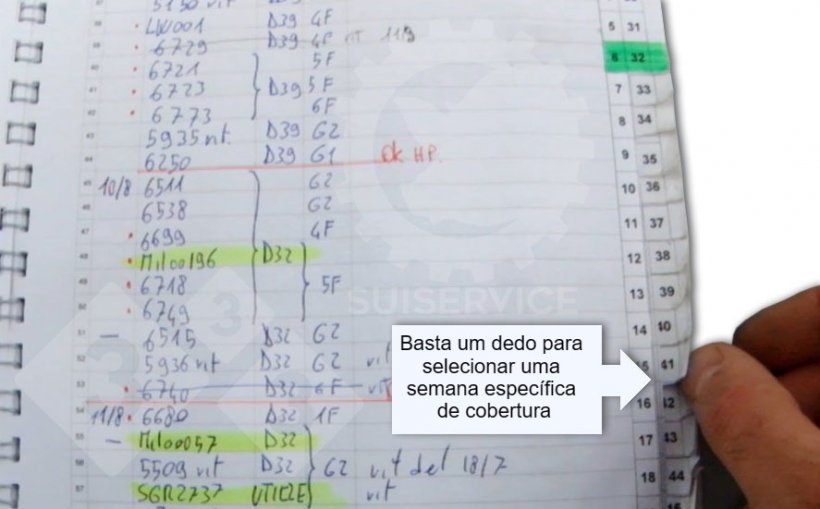 5150 vit D39 6F
• LW001 D39 4F
• 6729 D39 4F vit 11/9
• 6721 5F
• 6723 D39 5F
• 6773 6F
5935 vit. D39 G2
6250 D39 G1 ok HP.
10/8 6511 G2
6538 G2
• 6699 4F
• Mil00196 D32
• 6718 5F
• 6749
— 6515 D32 G2
5936 vit D32 G2 vit
• 6740 D32 6F
11/8 • 6680 D32 1F
— Mil0057 D32
5509 vit D32 G2 vit del 18/7
SGR2737 UTILE vit
5 31
6 32
7 33
8 34
9 35
10 36
11 37
12 38
13 39
14 40
41
16 42
17 43
18 44
Basta um dedo para
selecionar uma
semana específica
de cobertura
333
SUISERVICE